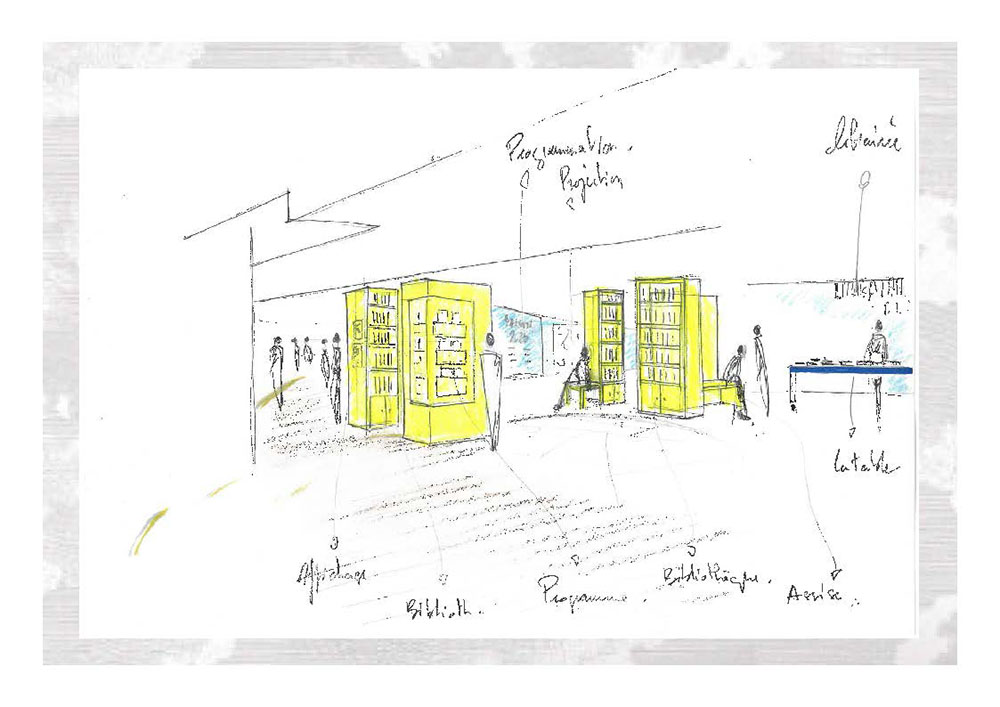 Programmation.
Projection
librairie
la table
Affichage
Biblioth.
Programme.
Bibliothèque.
Assise.